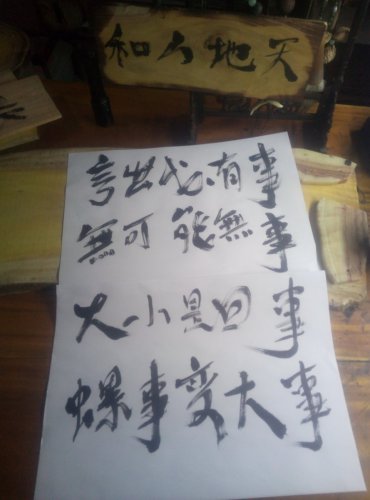 天地人和
言出必有事
無可能無事
大小是回事
螺事变大事